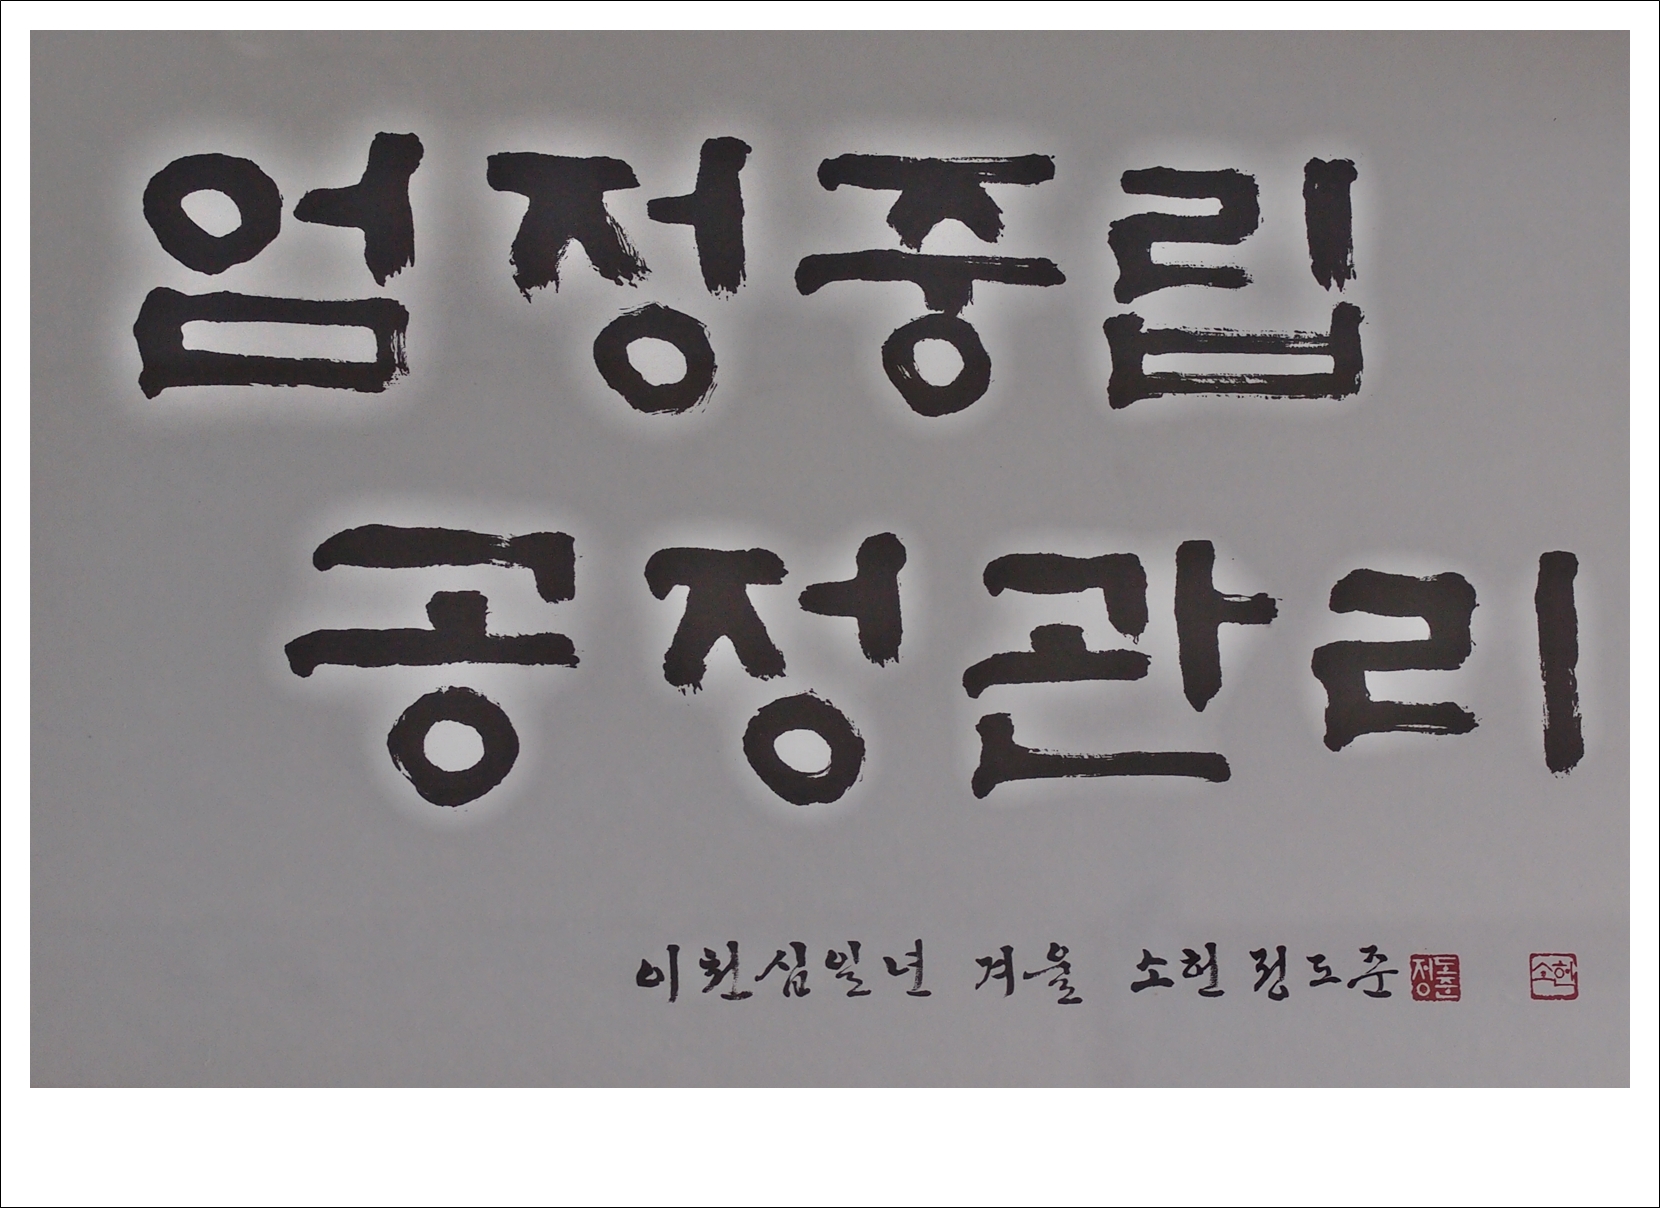 엄정중립
공정관리
이천십일년 겨울 소헌 정도준 정도준 소헌